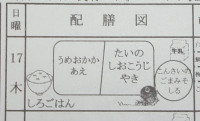 日
曜
配膳図
17
木
うめおかか
あえ
たいの
しおこうじ
やき
牛乳
こんさいの
ごまみそ
しる
しろごはん